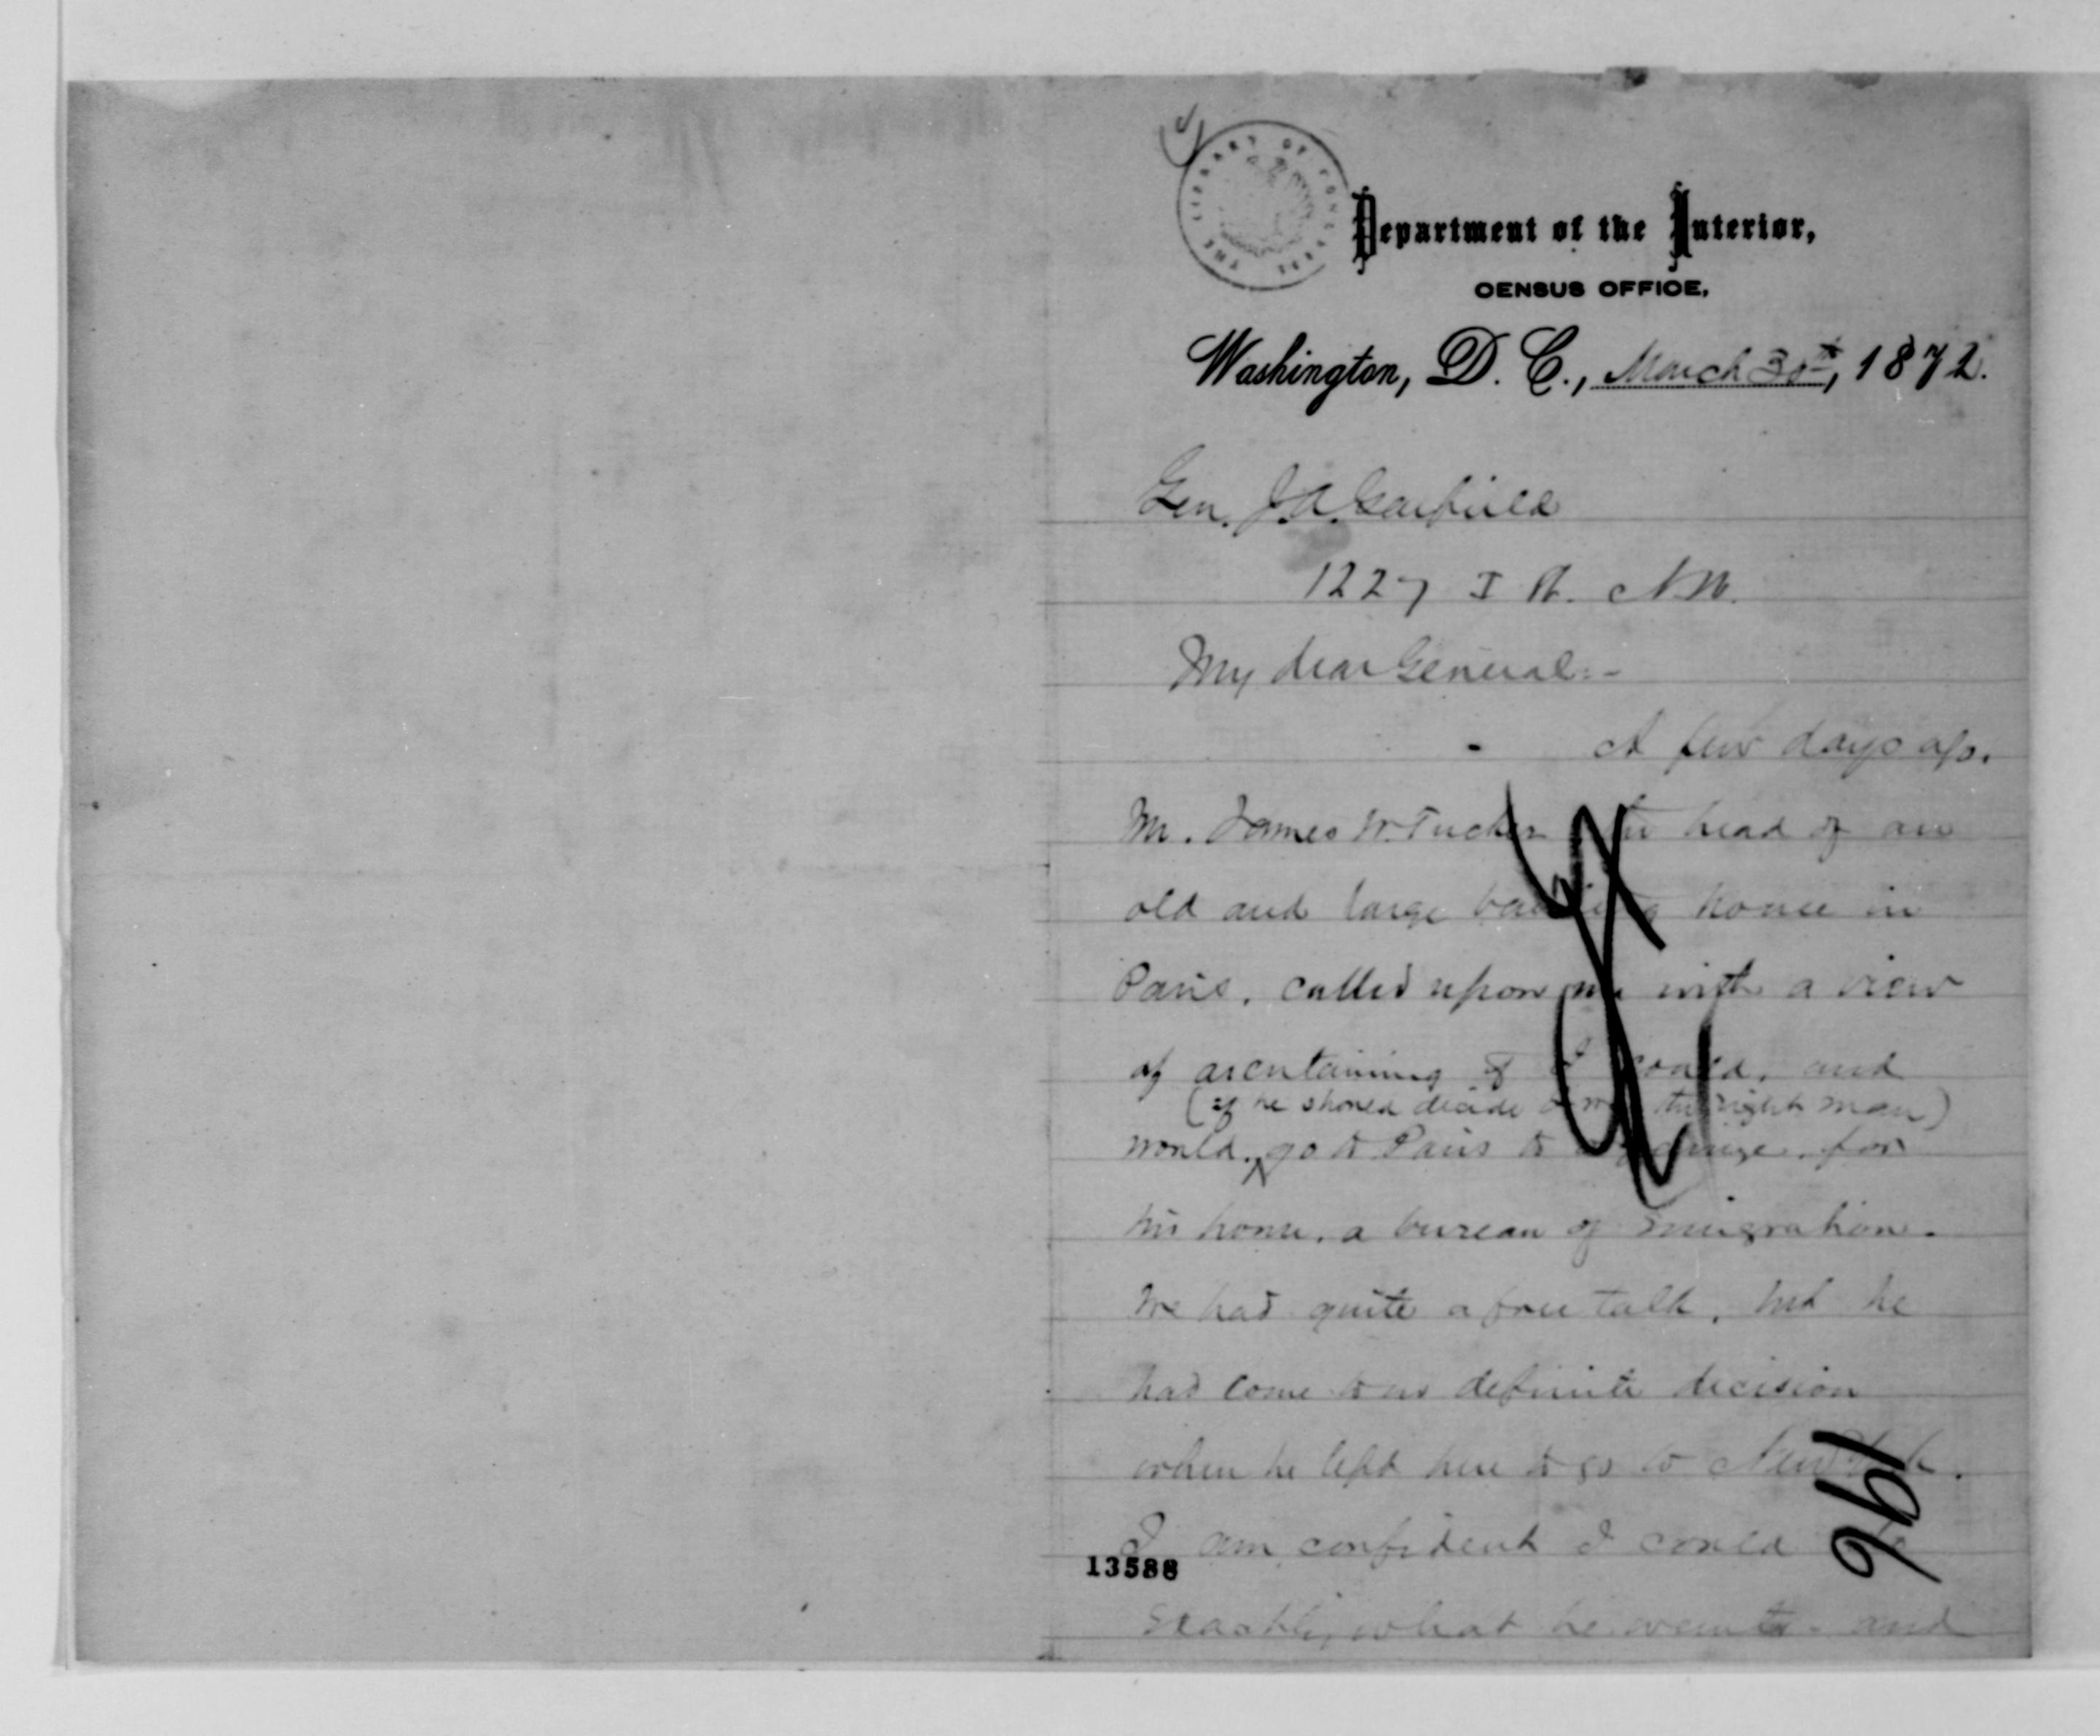 THE LIBRARY OF CONGRESS
Department of the Interior,
CENSUS OFFICE,
Washington, D. C., March 30th, 1872.
Gen. J. A. Garfield
1227 I St. N.W.
My dear General:-
A few days ago.
Mr. James W. Tucker the head of an
old and large banking house in
Paris, called upon me with a view
of ascertaining if I could, and
(if he should decide the right man)
would, go to Paris to organize, for
his house, a bureau of emigration.
We had quite a free talk, but he
had come to no definite decision
when he left here to go to New York.
I am confident I could do
13588
exactly what he wants. and
196